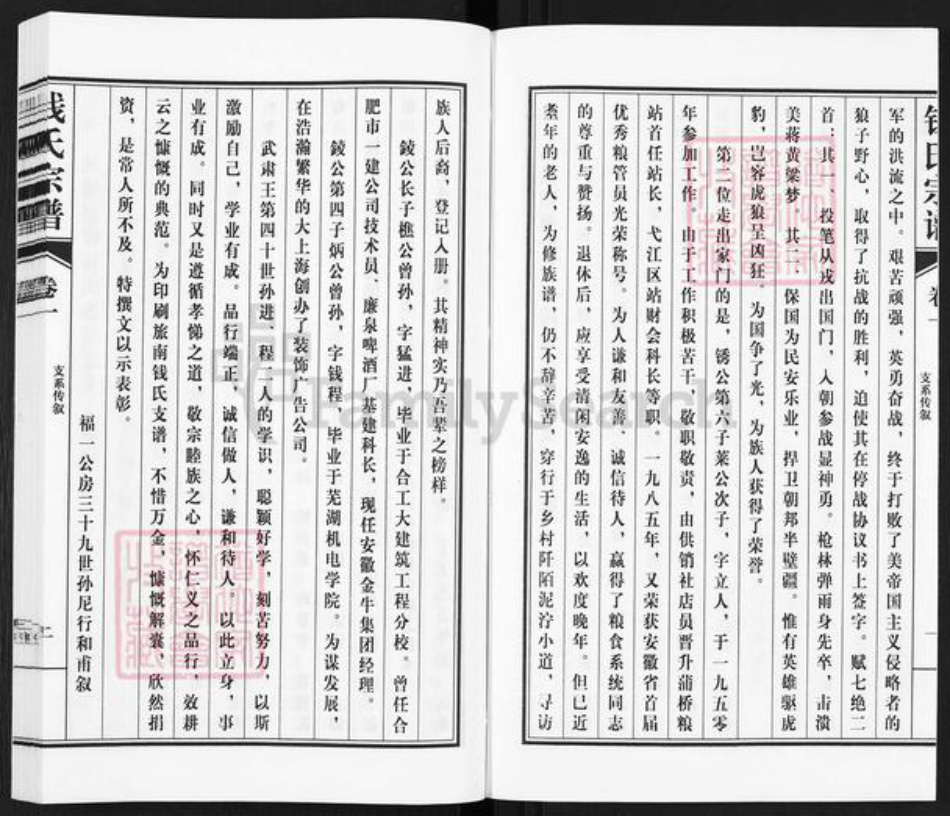 钱氏宗谱
卷一
支系传叙
一
军的洪流之中。艰苦顽强，英勇奋战，终于打败了美帝国主义侵略者的
狼子野心，取得了抗战的胜利，迫使其在停战协议书上签字。赋七绝二
首：其一、投笔从戎出国门，入朝参战显神勇。枪林弹雨身先卒，击溃
美蒋黄粱梦。其二、保国为民安乐业，捍卫朝邦半壁疆。惟有英雄驱虎
豹，岂容虎狼呈凶狂。为国争了光，为族人获得了荣誉。
第二位走出家门的是，锈公第六子莱公次子，字立人，于一九五零
年参加工作。由于工作积极苦干、敬职敬责，由供销社店员晋升蒲桥粮
站首任站长，弋江区站财会科长等职。一九八五年，又荣获安徽省首届
优秀粮管员光荣称号。为人谦和友善、诚信待人，赢得了粮食系统同志
的尊重与赞扬。退休后，应享受清闲安逸的生活，以欢度晚年。但已近
耄年的老人，为修族谱，仍不辞辛苦，穿行于乡村阡陌泥泞小道，寻访
族人后裔，登记入册。其精神实乃吾辈之榜样。
錂公长子樵公曾孙，字猛进，毕业于合工大建筑工程分校。曾任合
肥市一建公司技术员、廉泉啤酒厂基建科长，现任安徽金牛集团经理。
錂公第四子炳公曾孙，字钱程，毕业于芜湖机电学院。为谋发展，
在浩瀚繁华的大上海创办了装饰广告公司。
武肃王第四十世孙进、程二人的学识，聪颖好学，刻苦努力，以斯
激励自己，学业有成。品行端正，诚信做人，谦和待人。以此立身，事
业有成。同时又是遵循孝悌之道，敬宗睦族之心，怀仁义之品行，效耕
云之慷慨的典范。为印刷旅南钱氏支谱，不惜万金，慷慨解囊，欣然捐
资，是常人所不及。特撰文以示表彰。
福一公房三十九世孙尼行和甫叙
钱氏宗谱
卷一
支系传叙
二
FamilySearch